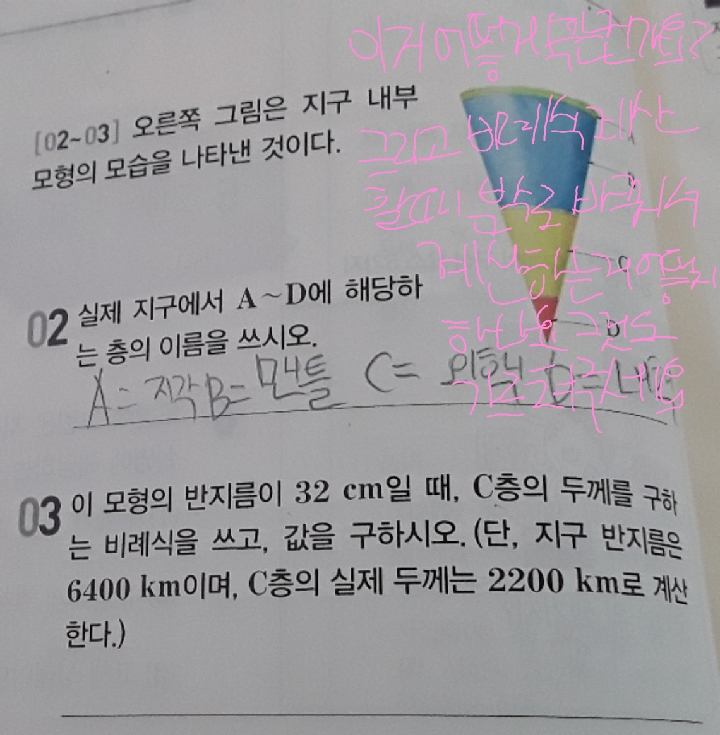 이거 어떻게 푸는건가요?
[02~03] 오른쪽 그림은 지구 내부
모형의 모습을 나타낸 것이다.
그리고 비례식 계산
할때 분수로 바꿔서
계산하는거 어떻게
하는지 그것도
가르쳐주세요
B
C
D
02 실제 지구에서 A~D에 해당하
는 층의 이름을 쓰시오.
A=지각 B=맨틀 C=외핵 D=내핵
03 이 모형의 반지름이 32 cm일 때, C층의 두께를 구하
는 비례식을 쓰고, 값을 구하시오. (단, 지구 반지름은
6400 km이며, C층의 실제 두께는 2200 km로 계산
한다.)